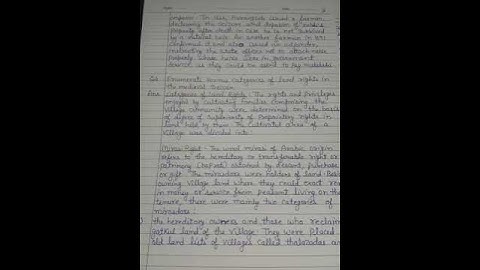 empire. In 1666, Aurangzeb issued a farman
declaring the the escheat
property after death in case he is not survived
by a natural heir. In another farman in 1691
confirmed it and also issued an
instructing the state officers not to attach
property whose heirs were in government
service, as they could be asked to pay mutalaba
Q. Enumerate various categories of land rights in
the medieval Deccan.
Ans. Categories of land Rights - The rights and privileges
enjoyed by cultivating families comprising the
village community were determined on the basis
of degree of superiority of proprietary rights in
land held by them. The cultivated area of a
village was divided into:
Miras Right - The word miras of Arabic origin
refers to the hereditary or transferable right or
patrimony (bapoti) obtained by descent, purchase
or gift. The mirasdars were holders of land. Besid
owning village land where they could exact ren
in money or service from peasant living on the
tenure, there were mainly two categories of
mirasdars.
the hereditary owners and those who reclaim
gatkul land of the village. They were placed
old land lists of villages called thalazadas a